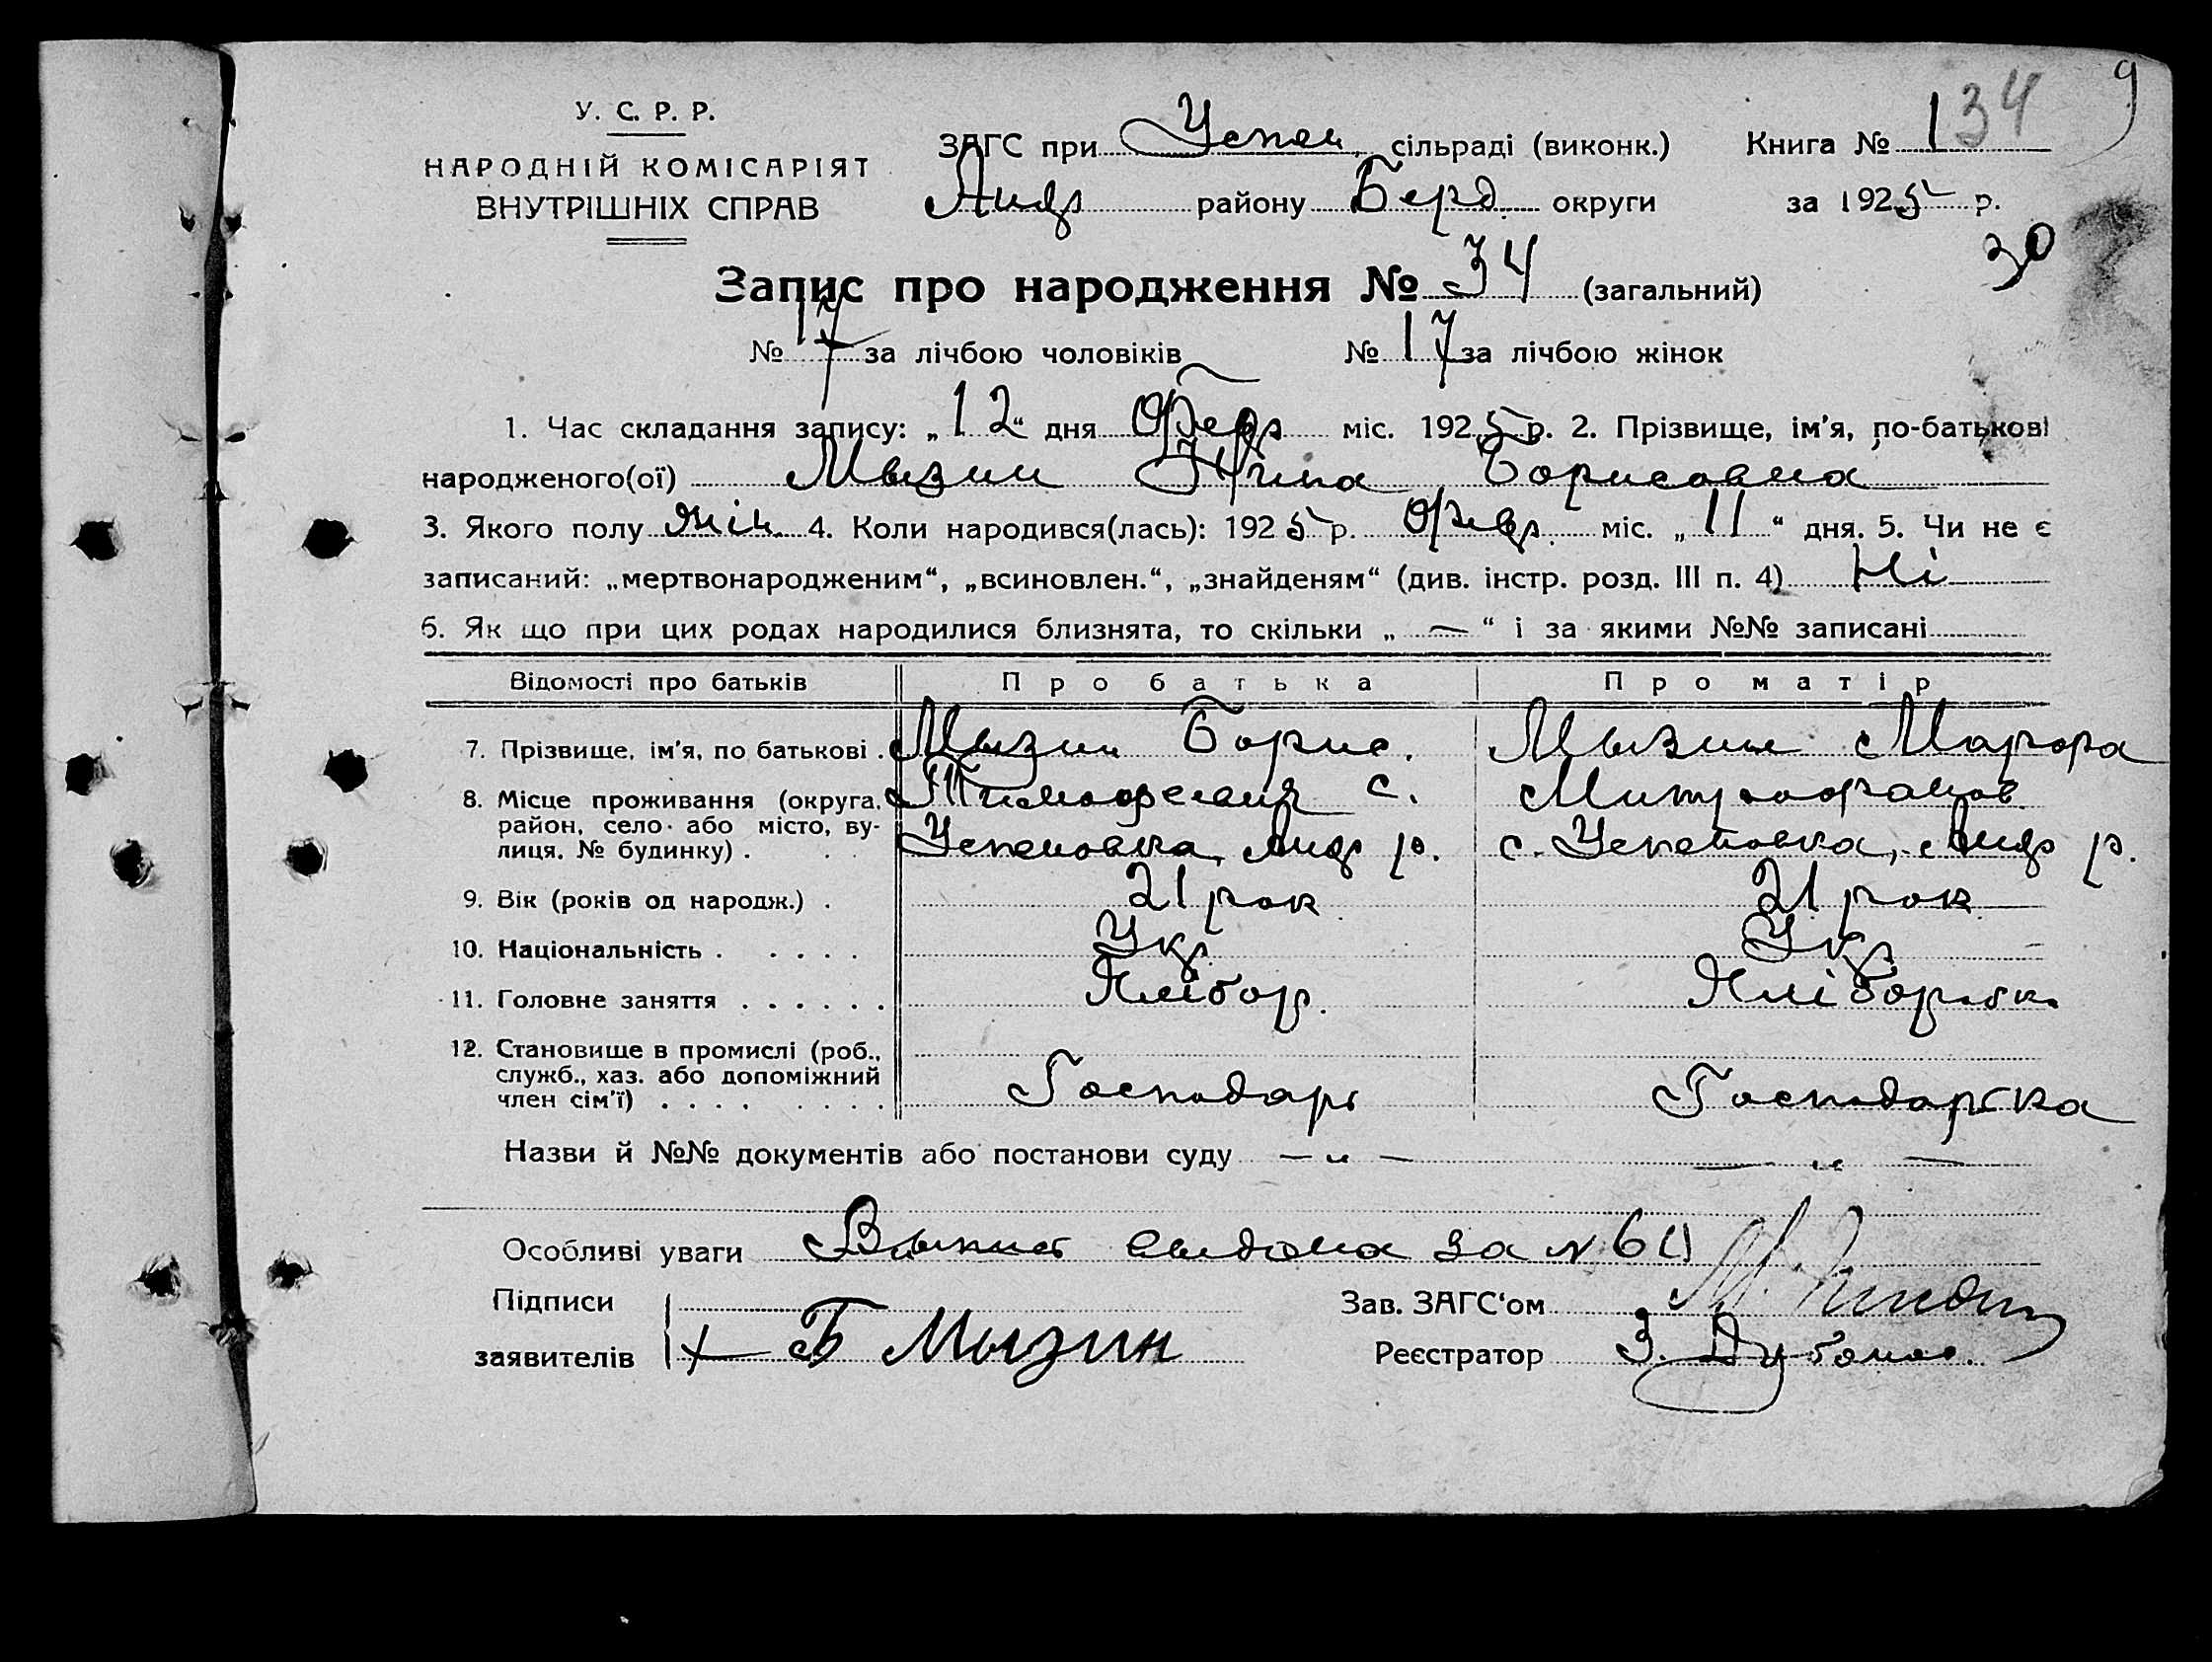 9
У. С. Р. Р.
НАРОДНІЙ КОМІСАРІЯТ
ВНУТРІШНІХ СПРАВ
ЗАГС при Успен. сільраді (виконк.) Книга № 1 34
Андр району Берд. округи за 1925 р.
30
Запис про народження № 34 (загальний)
№ 17 за лічбою чоловіків № 17 за лічбою жінок
1. Час складання запису: „12“ дня Февр міс. 1925 р. 2. Прізвище, ім'я, по-батькові
народженого(ої) Мызин Нина Борисовна
3. Якого полу жін. 4. Коли народився(лась): 1925 р. Февр. міс. „11“ дня. 5. Чи не є
записаний: „мертвонародженим“, „всиновлен.“, „знайденям“ (див. інстр. розд. III п. 4) Ні
6. Як що при цих родах народилися близнята, то скільки „ — “ і за якими №№ записані
Відомості про батьків Про батька Про матір
7. Прізвище, ім'я, по батькові . Мызин Борис. Мызин Марфа
8. Місце проживання (округа, район, село або місто, вулиця, № будинку) . Тимофеевич с. Митрофанов
Успеновка, Андр р. с. Успеновка, Андр р.
9. Вік (років од народж.) . 21 рок 21 рок
10. Національність . . . . . Укр. Укр
11. Головне заняття . . . . . . Хлібор. Хліборобк.
12. Становище в промислі (роб., служб., хаз. або допоміжний член сім'ї) . . . . Господарь Господарька
Назви й №№ документів або постанови суду — „ — — „ —
Особливі уваги за №
Підписи Зав. ЗАГС'ом
заявителів + Б Мызин Реєстратор З.